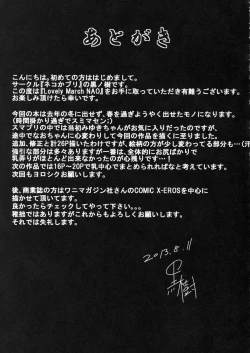 あとがき
こんにちは。初めての方ははじめまして。
サークル『ネコかぶリ』の黒ノ樹です。
この度は『Lovely March NAO』をお手に取っていただき有難うございます。
お楽しみ頂けたら幸いです。
今回の本は去年の冬に出せず、春を過ぎようやく出せたモノになります。
(時間掛かり過ぎでスミマセン)
スマプリの中では当初みゆきちゃんがお気に入りだったのですが、
途中でなおちゃんに心変わりして今回の作品を描くに至りました。
追加、修正と計26P描いたわけですが、絵柄の方が少し変わった部分も…(汗
強引な部分は多々ありますが一番は、全体的にお尻ばかりで
乳弄りがほとんど出来なかったのが心残りです…!
次回の作品では16P～20Pで乳中心でまとめられればなと考えています。
次回もヨロシクお願いします。
後、商業誌の方はワニマガジン社さんのCOMIC X-EROSを中心に
描かせて頂いてます。
良かったらチェックしてやって下さい。
稚拙ではありますがこれからもよろしくお願いします。
それでは失礼します。
2013.8.11
黒ノ樹